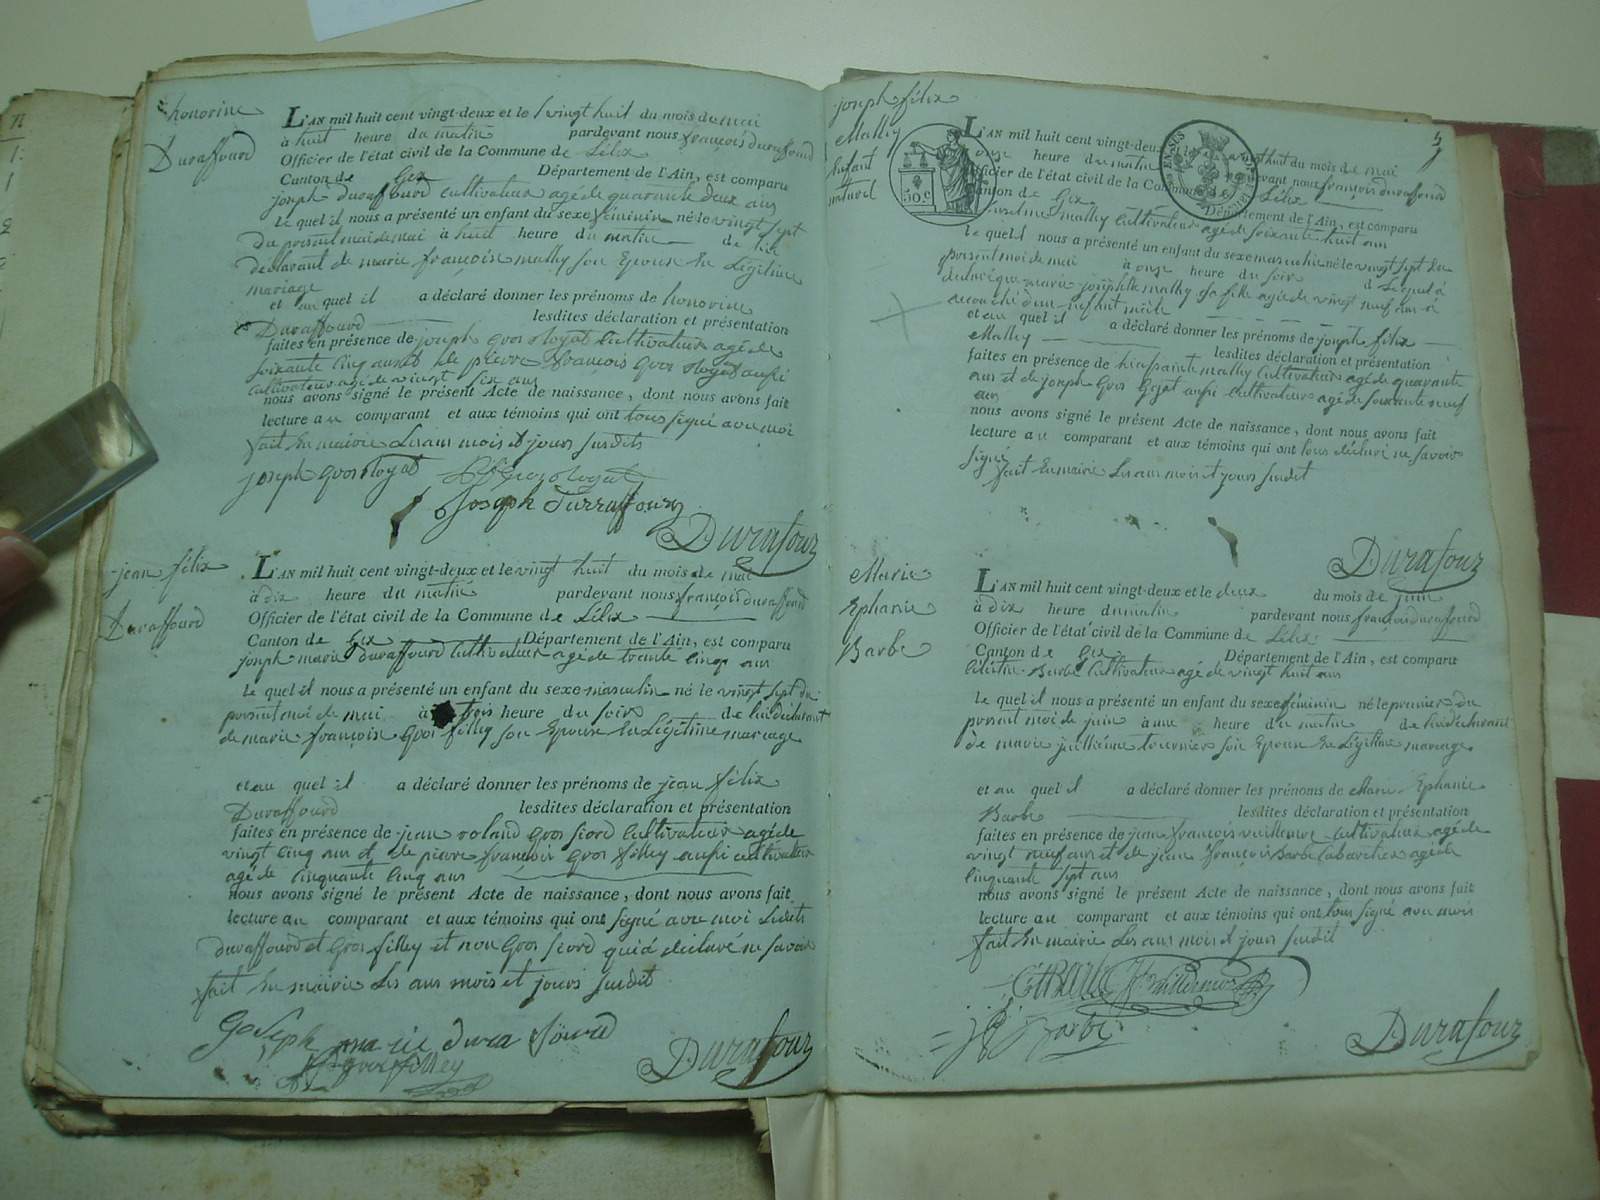 honorine
Duraffourd
L'AN mil huit cent vingt-deux et le vingt huit du mois de mai
à huit heure du matin pardevant nous françois duraffourd
Officier de l'état civil de la Commune de Lélix
Canton de Gex Département de l'Ain, est comparu
joseph duraffourd cultivateur agé de quarante deux ans
Le quel il nous a présenté un enfant du sexe féminin né le vingt sept
du présent mois de mai à huit heure du matin de lui
déclarant de marie françoise mathy son Epouse En Légitime
mariage
et au quel il a déclaré donner les prénoms de honorine
Duraffourd lesdites déclaration et présentation
faites en présence de joseph gros cultivateur agé de
soixante cinq ans et de pierre françois gros aussi
cultivateur agé de vingt six ans
nous avons signé le présent Acte de naissance, dont nous avons fait
lecture au comparant et aux témoins qui ont tous signé avec moi
fait En mairie Les an mois et jours susdits
joseph gros
Joseph Durraffourd
Durafour
jean félix
Duraffourd
L'AN mil huit cent vingt-deux et le vingt huit du mois de mai
à dix heure du matin pardevant nous françois duraffourd
Officier de l'état civil de la Commune de Lélix
Canton de Gex Département de l'Ain, est comparu
joseph marie duraffourd cultivateur agé de trente cinq ans
Le quel il nous a présenté un enfant du sexe masculin né le vingt sept du
présent moi de mai à trois heure du soir de lui déclarant
de marie françoise Gros filley son Epouse En Légitime mariage
et au quel il a déclaré donner les prénoms de jean félix
Duraffourd lesdites déclaration et présentation
faites en présence de jean roland gros fiord cultivateur agé de
vingt cinq ans et de pierre françois gros filley aussi cultivateur
agé de cinquante cinq ans
nous avons signé le présent Acte de naissance, dont nous avons fait
lecture au comparant et aux témoins qui ont signé avec moi Lesdits
duraffourd et gros filley et non gros fiord qui a déclaré ne savoir
fait En mairie Les ans mois et jours susdit
Joseph marie dura fourd
gros filley
Durafour
joseph félix
Mathy
Enfant
naturel
50 c
EN SUS
5
L'AN mil huit cent vingt-deux et le vingt huit du mois de mai
à onze heure du matin pardevant nous françois duraffourd
Officier de l'état civil de la Commune de Lélix
Canton de Gex Département de l'Ain, est comparu
anselme mathy cultivateur agé de soixante huit ans
Le quel il nous a présenté un enfant du sexe masculin né le vingt sept du
présent moi de mai à onze heure du soir
marie josephte mathy sa fille agée de vingt neuf ans
accouché d'un Enfant mâle
et au quel il a déclaré donner les prénoms de joseph félix
Mathy lesdites déclaration et présentation
faites en présence de hiacinthe mathy cultivateur agé de quarante
ans et de joseph gros aussi cultivateur agé de soixante neuf
ans
nous avons signé le présent Acte de naissance, dont nous avons fait
lecture au comparant et aux témoins qui ont tous déclaré ne savoir
signé
fait En mairie Les an mois et jours susdit
Durafour
Marie
Ephanie
Barbe
L'AN mil huit cent vingt-deux et le deux du mois de juin
à dix heure du matin pardevant nous françois duraffourd
Officier de l'état civil de la Commune de Lélix
Canton de Gex Département de l'Ain, est comparu
Célestin Barbe cultivateur agé de vingt huit ans
Le quel il nous a présenté un enfant du sexe féminin né le premier du
présent moi de juin à une heure du matin de lui déclarant
de marie jullienne tournier son Epouse En Légitime mariage
et au quel il a déclaré donner les prénoms de Marie Ephanie
Barbe lesdites déclaration et présentation
faites en présence de jean françois vuillerme cultivateur agé de
vingt neuf ans et de jean françois Barbe cabartier agé de
cinquante sept ans
nous avons signé le présent Acte de naissance, dont nous avons fait
lecture au comparant et aux témoins qui ont tous signé avec moi
fait En mairie Les ans mois et jours susdit
Barbe
Barbe
Durafour